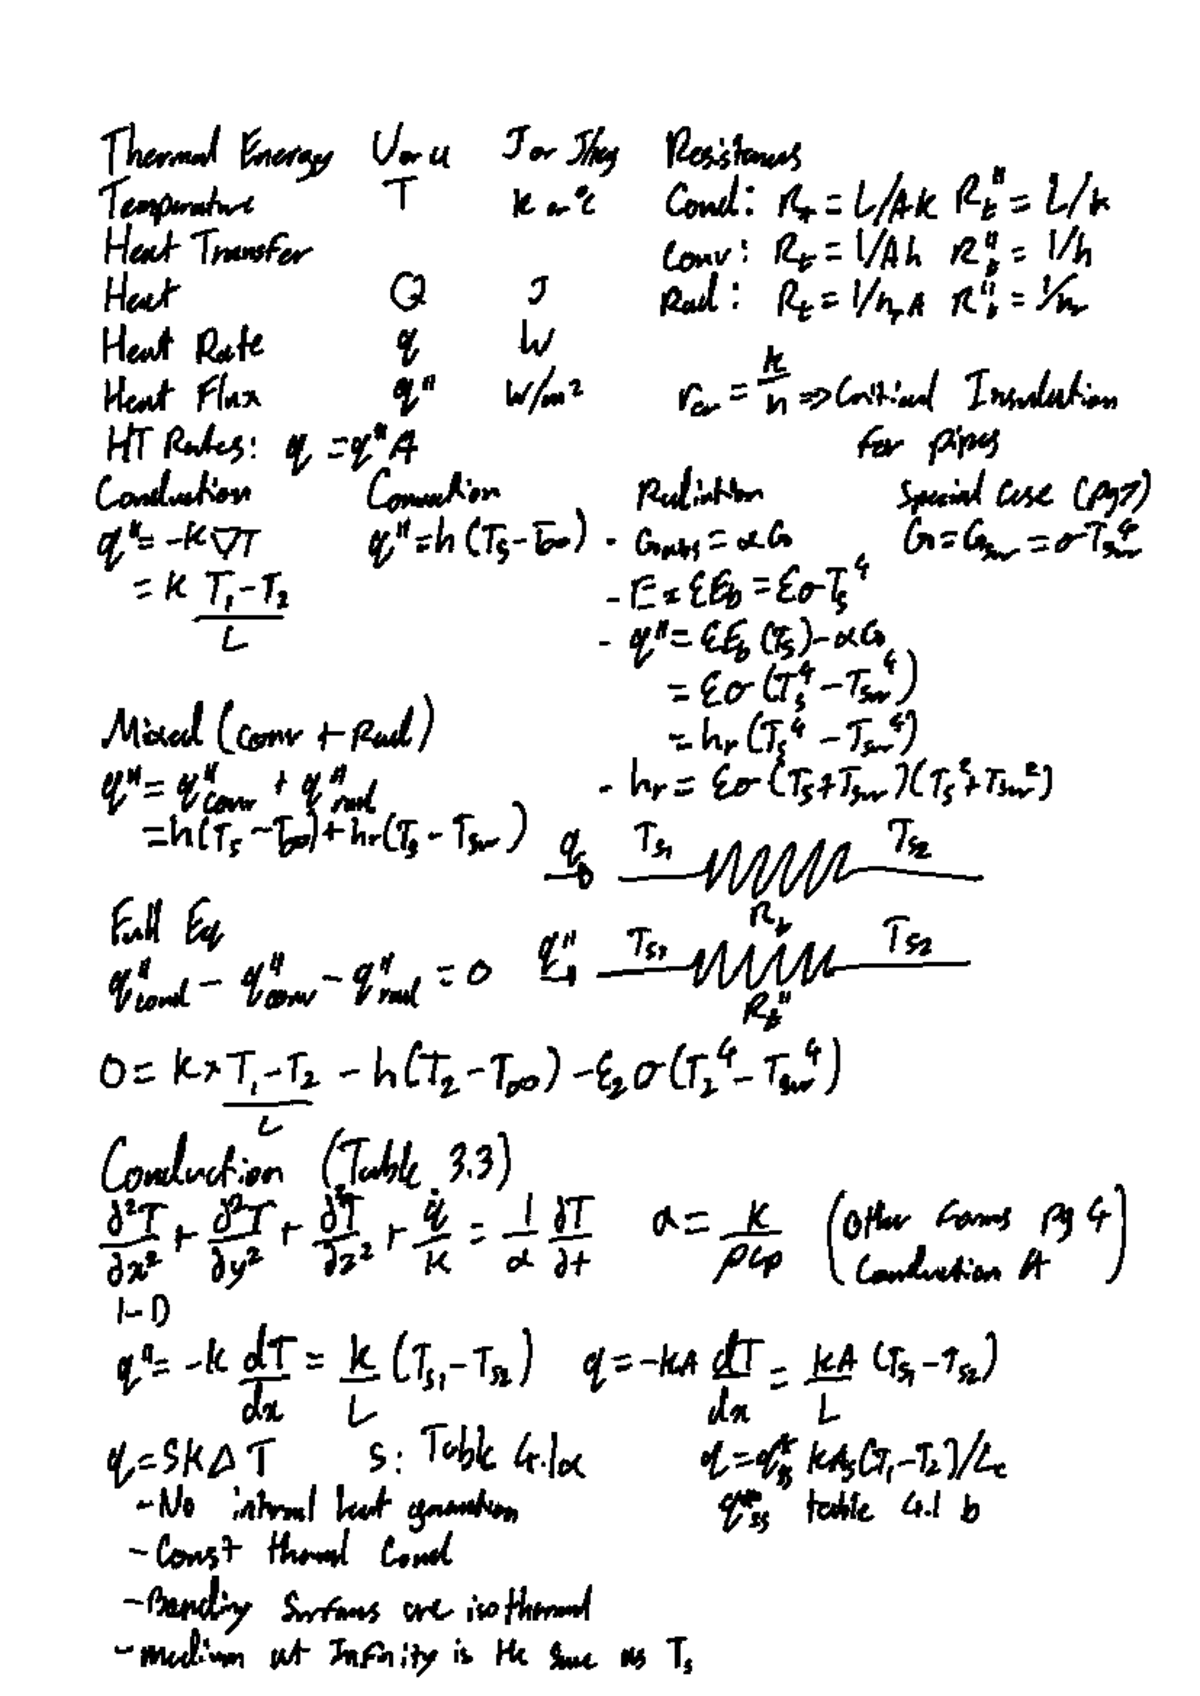 Thermal Energy U or u J or J/kg Resistances
Temperature T K or °C Cond: R_t = L/Ak R_t" = L/k
Heat Transfer Conv: R_t = 1/Ah R_t" = 1/h
Heat Q J Rad: R_t = 1/h_r A R_t" = 1/h_r
Heat Rate q W
Heat Flux q" W/m² r_cr = k/h => Critical Insulation
HT Rates: q = q"A for pipes
Conduction Convection Radiation Special Case (pg7)
q" = -k∇T q" = h(T_s - T_∞) - G_abs = αG G = G_sur = σT_sur⁴
= k (T_1 - T_2)/L - E = εE_b = εσT_s⁴
- q" = εE_b(T_s) - αG
= εσ(T_s⁴ - T_sur⁴)
Mixed (Conv + Rad) = h_r(T_s⁴ - T_sur⁴)
q" = q"_conv + q"_rad - h_r = εσ(T_s + T_sur)(T_s² + T_sur²)
= h(T_s - T_∞) + h_r(T_s - T_sur) q T_s1 R_t T_s2
Full Eq
q"_cond - q"_conv - q"_rad = 0 q" T_s1 R_t" T_s2
0 = k × (T_1 - T_2)/L - h(T_2 - T_∞) - ε_2σ(T_2⁴ - T_sur⁴)
Conduction (Table 3.3)
∂²T/∂x² + ∂²T/∂y² + ∂²T/∂z² + q̇/k = 1/α ∂T/∂t α = k/ρc_p (Other Forms pg 4 Conduction A)
1-D
q" = -k dT/dx = k/L (T_s1 - T_s2) q = -kA dT/dx = kA/L (T_s1 - T_s2)
q = SkΔT S: Table 4.1a q = q*_ss kA_s(T_1 - T_2)/L_c
- No internal heat generation q*_ss table 4.1 b
- Const thermal Cond
- Bounding Surfaces are isothermal
- medium at Infinity is the same as T_s